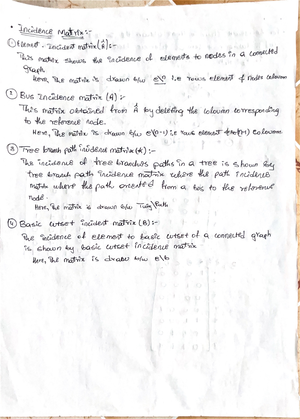 • Incidence Matrix:-
① Element - Incident matrix (Â):-
This matrix shows the incidence of elements to nodes in a connected
graph.
Here, The matrix is drawn b/w e×n i.e rows element & Nodes column
② Bus Incidence matrix (A) :-
This matrix obtained from Â by deleting the column corresponding
to the reference node.
Here, The matrix is drawn b/w e×(n-1) i.e rows element columns
③ Tree branch path incidence matrix (K) :-
The incidence of tree branchs paths in a tree is shown by
tree branch path incidence matrix where the path incidence
matrix where the path oriented from a bus to the reference
node.
Here, The matrix is drawn b/w Path
④ Basic cutset incident matrix (B) :-
The incidence of element to basic cutset of a connected graph
is shown by basic cutset incidence matrix
Here, The matrix is draw b/w e×b